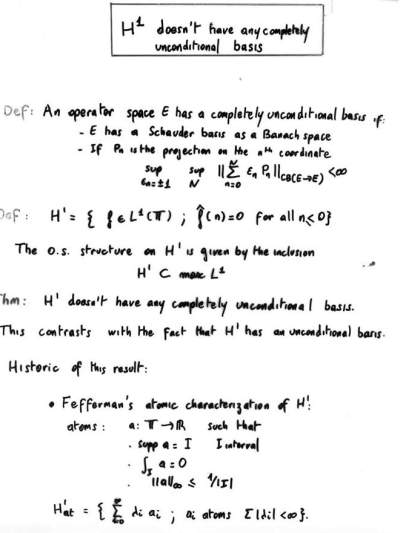 H¹ doesn't have any completely
unconditional basis
Def: An operator space E has a completely unconditional basis if:
- E has a Schauder basis as a Banach space
- If Pn is the projection on the nth coordinate
sup sup ||∑ εn Pn||CB(E→E) <∞
εn=±1 N n=0
Def: H¹ = { f ∈ L¹(𝕋) ; f̂(n)=0 for all n≤0}
The o.s. structure on H¹ is given by the inclusion
H¹ ⊂ max L¹
Thm: H¹ doesn't have any completely unconditional basis.
This contrasts with the fact that H¹ has an unconditional basis.
Historic of this result:
• Fefferman's atomic characterization of H¹:
atoms: a: 𝕋 → ℝ such that
. supp a = I I interval
. ∫I a = 0
. ||a||∞ ≤ 1/|I|
H¹at = { ∑ λi ai ; ai atoms Σ|λi| <∞}.